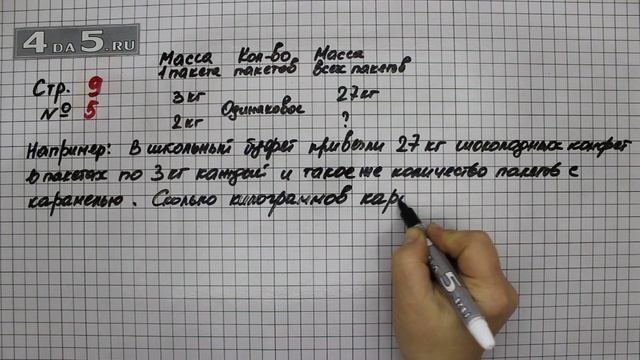 4DA5.RU
Стр. 9
№ 5
Масса Кол-во Масса
1 пакета пакетов всех пакетов
3 кг Одинаковое 27 кг
2 кг ?
Например: В школьный буфет привезли 27 кг шоколадных конфет
в пакетах по 3 кг каждый и такое же количество пакетов с
карамелью. Сколько килограммов кар